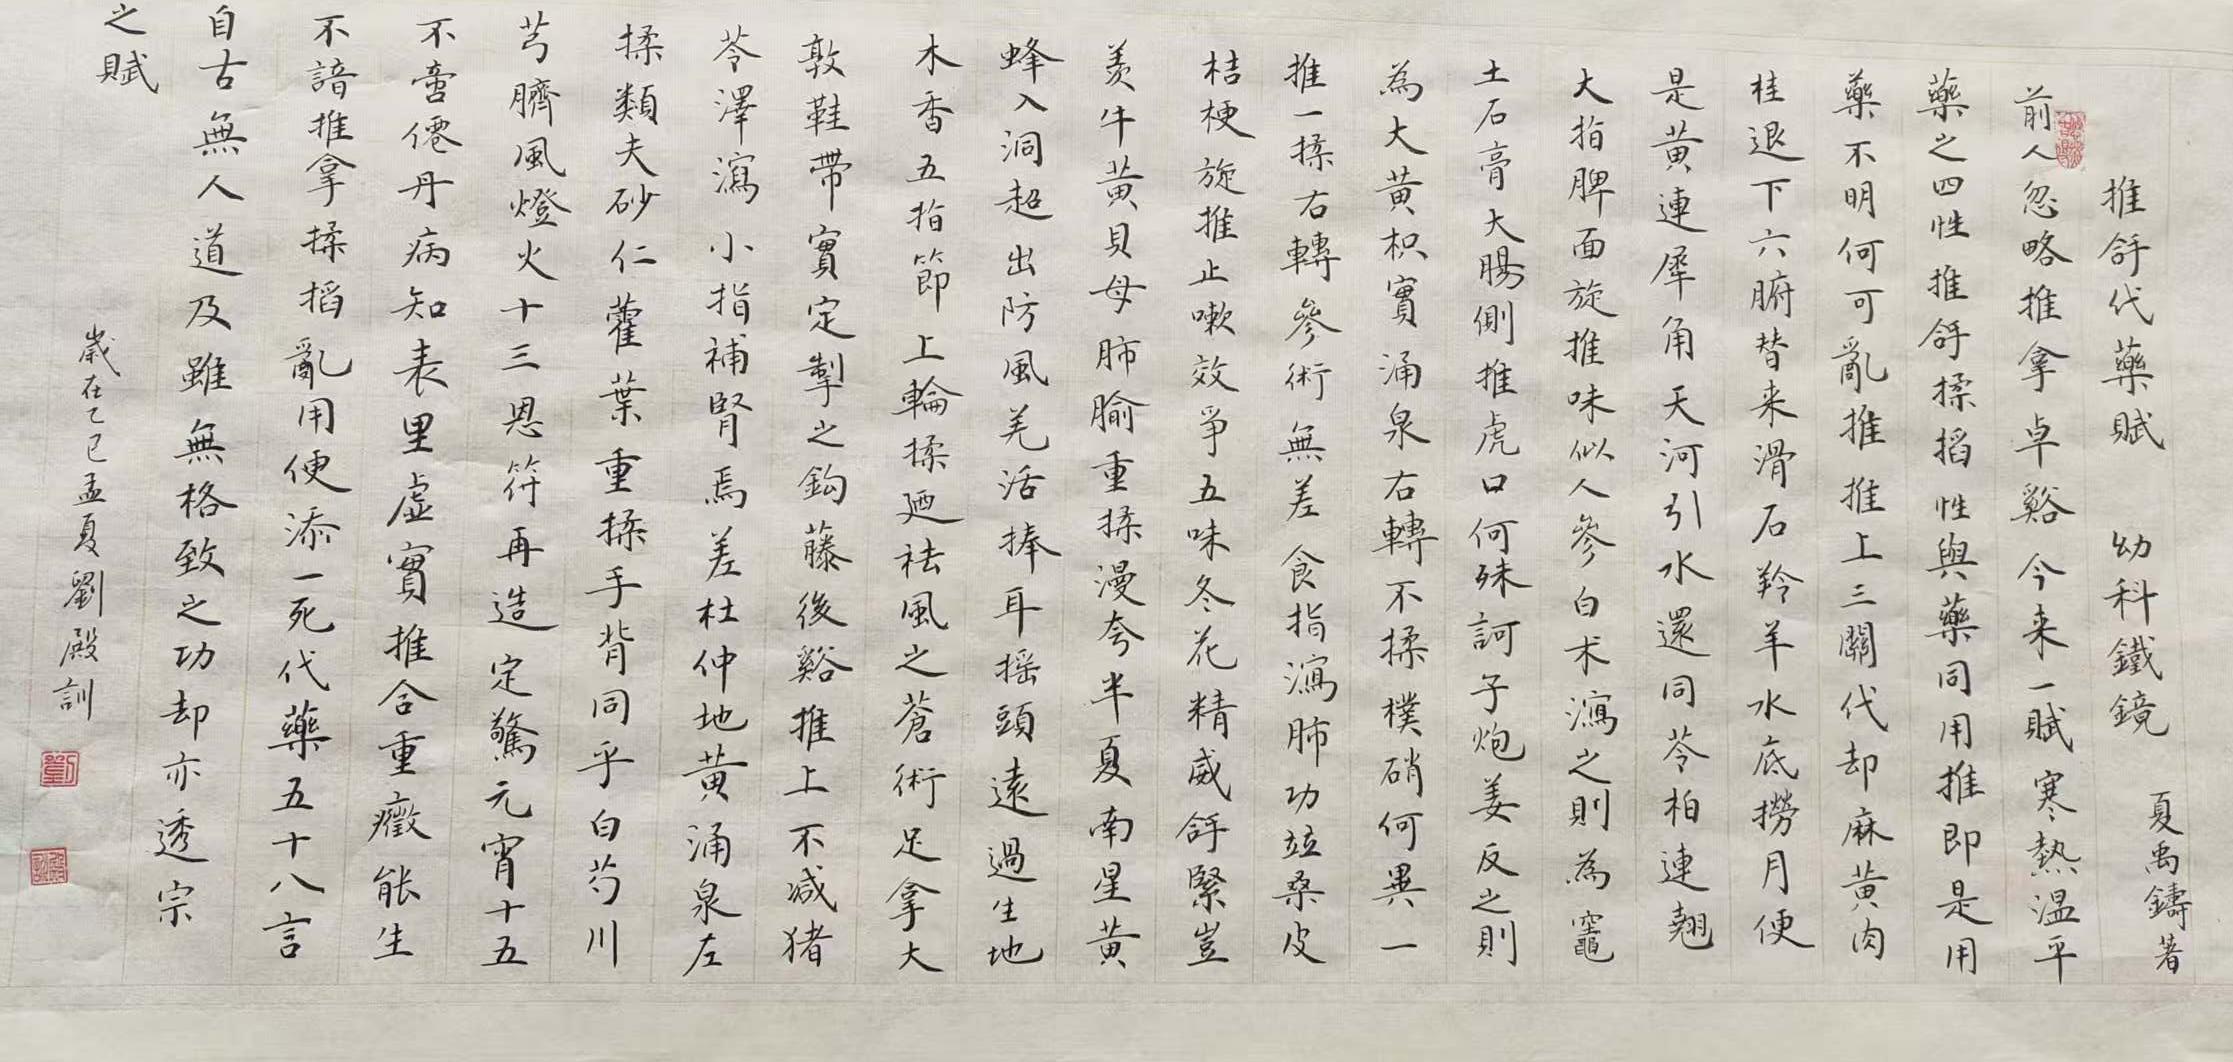 推舒代藥賦 幼科鐵鏡 夏禹鑄著
前人忽略推拿卓谿今来一賦寒熱温平
藥之四性推舒揉掐性與藥同用推即是用
藥不明何可亂推推上三關代却麻黄肉
桂退下六腑替来滑石羚羊水底撈月便
是黄連犀角天河引水還同芩柏連翹
大指脾面旋推味似人參白术瀉之則為竈
土石膏大腸側推虎口何殊訶子炮姜反之則
為大黄枳實涌泉右轉不揉樸硝何異一
推一揉右轉參術無差食指瀉肺功竝桑皮
桔梗旋推止嗽效爭五味冬花精威舒緊豈
羡牛黄貝母肺腧重揉漫夸半夏南星黄
蜂入洞超出防風羌活捧耳摇頭遠過生地
木香五指節上輪揉廼祛風之蒼術足拿大
敦鞋帶實定掣之鈎藤後谿推上不减猪
苓澤瀉小指補腎焉差杜仲地黄涌泉左
揉類夫砂仁藿葉重揉手背同乎白芍川
芎臍風燈火十三恩符再造定驚元宵十五
不啻僊丹病知表里虚實推合重癥能生
不諳推拿揉掐亂用便添一死代藥五十八言
自古無人道及雖無格致之功却亦透宗
之賦
歲在乙巳孟夏劉殿訓